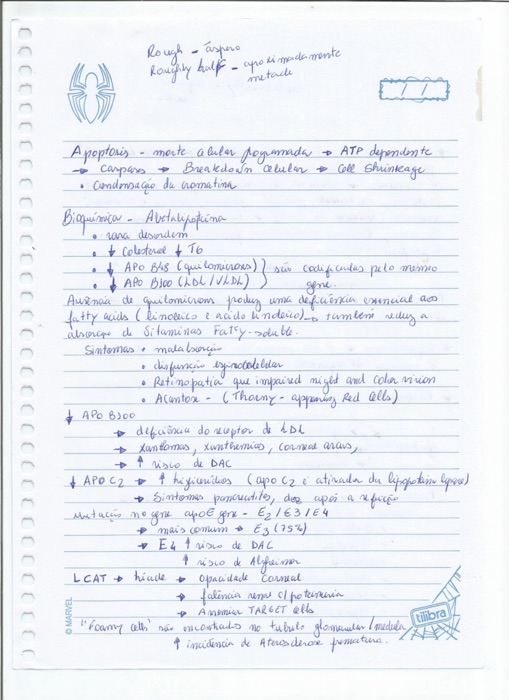 Rough - áspero
Roughly half - aproximadamente
metade
/ /
Apoptosis - morte celular programada → ATP dependente
→ Caspases → Breakdown celular → Cell Shrinkage
• Condensação da cromatina
Bioquímica - Abetalipoproteína
• rara desordem
• ↓ Colesterol ↓ TG
• ↓ APO B48 (quilomicrons) } são codificadas pelo mesmo
• ↓ APO B100 (LDL/VLDL) gene.
Ausência de quilomicrons produz uma deficiência essencial aos
fatty acids (linoleico e ácido linoleico) → também reduz a
absorção de Vitaminas Fatty-soluble.
Sintomas • malabsorção
• disfunção espinocelular
• Retinopatia que impaired night and color vision
• Acantose - (Thorny-appearing Red Cells)
↓ APO B100
→ deficiência do receptor de LDL
→ Xantomas, xanthemias, corneal arcus,
→ ↑ risco de DAC
↓ APO C2 → ↑ trigicerídios (apo C2 é ativada da lipoprotein lipase)
→ Sintomas pancreatites, dor após a refeição
Mutação no gene apoE gene - E2/E3/E4
→ mais comum → E3 (75%)
→ E4 ↑ risco de DAC
↑ risco de Alzheimer
LCAT → tríade → Opacidade Corneal
→ falência renal c/ proteinúria
→ Anemia TARGET Cells
"Foamy cells" são encontrados no túbulo glomerular/medula
↑ incidência de Aterosclerose prematura.
© MARVEL
tilibra